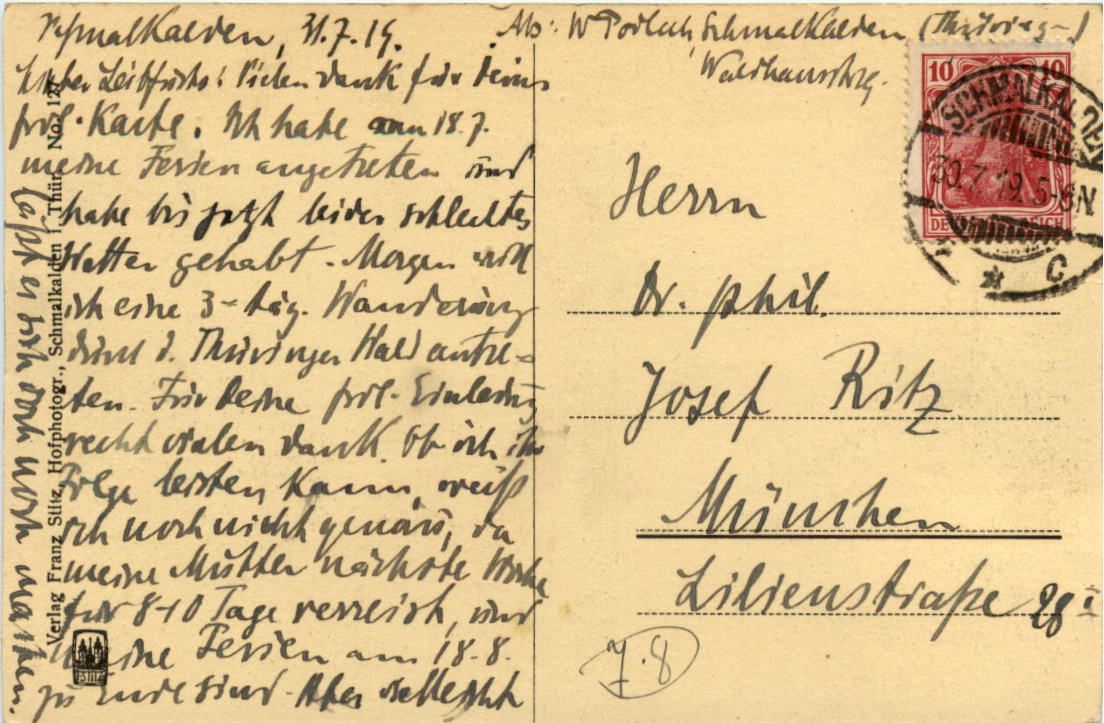 Schmalkalden, 31.7.19.
Lieber Leibfuchs! Vielen Dank für Deine
frdl. Karte. Ich habe am 18.7.
meine Ferien angetreten und
habe bis jetzt leider schlechtes
Wetter gehabt. Morgen will
ich eine 3-täg. Wanderung
durch d. Thüringer Wald antre-
ten. Für Deine frdl. Einladung
recht vielen Dank. Ob ich ihr
Folge leisten kann, weiß
ich noch nicht genau, da
meine Mutter nächste Woche
für 8-10 Tage verreist, und
meine Ferien am 18.8.
zu Ende sind. Aber vielleicht
läßt es sich doch noch machen.
Verlag Franz Stitz, Hofphotogr., Schmalkalden i. Thür. No. 127
F. STITZ
Abs: W Schmalkalden (Thüringen)
Waldhausstrg.
10 10
DE REICH
SCHMALKALDEN
30.7.19. 5-6N.
* C
Herrn
Dr. phil.
Josef Ritz
München
Lilienstraße 28 I
7.8